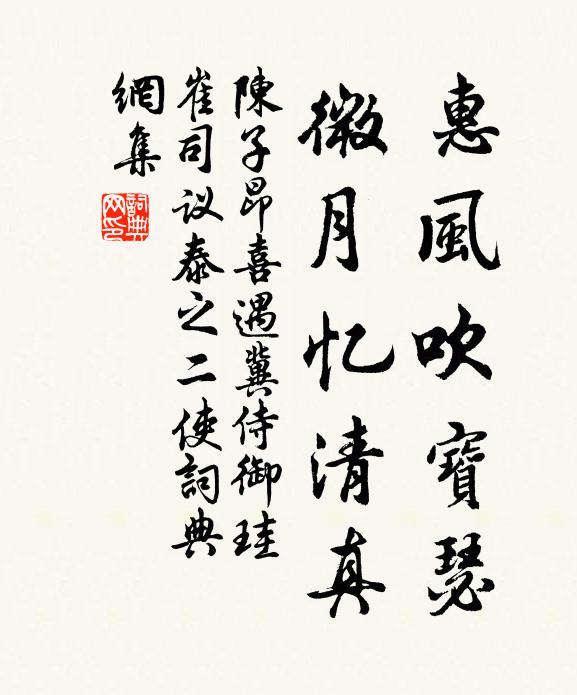 惠風吹寶瑟
微月忆清真
陳子昂喜遇冀侍御珪
崔司议泰之二使詞典
網集
詞典网印